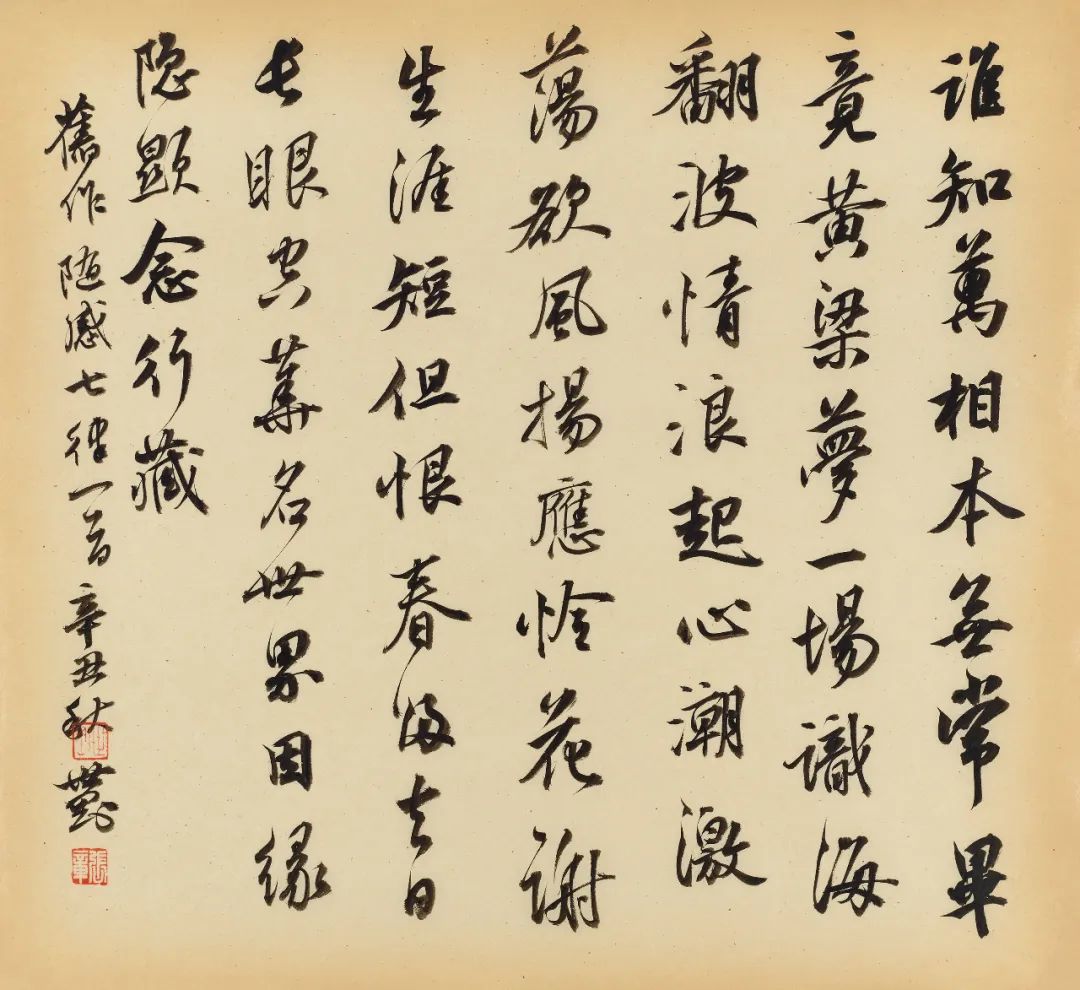 誰知萬相本無常畢
竟黃粱夢一場識海
翻波情浪起心潮激
蕩欲風揚應憐花謝
生涯短但恨春歸去日
長眼空華名世界因緣
隐顯念行藏
舊作随感七律一首辛丑秋
張